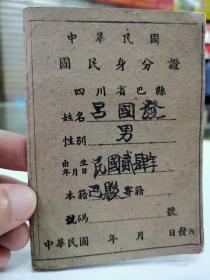 中華民國
國民身分證
四川省巴縣
姓名 呂國發
性別 男
出生年月日 民國貳肆年
本籍 巴縣 寄籍
號碼 號
中華民國 年 月 日發